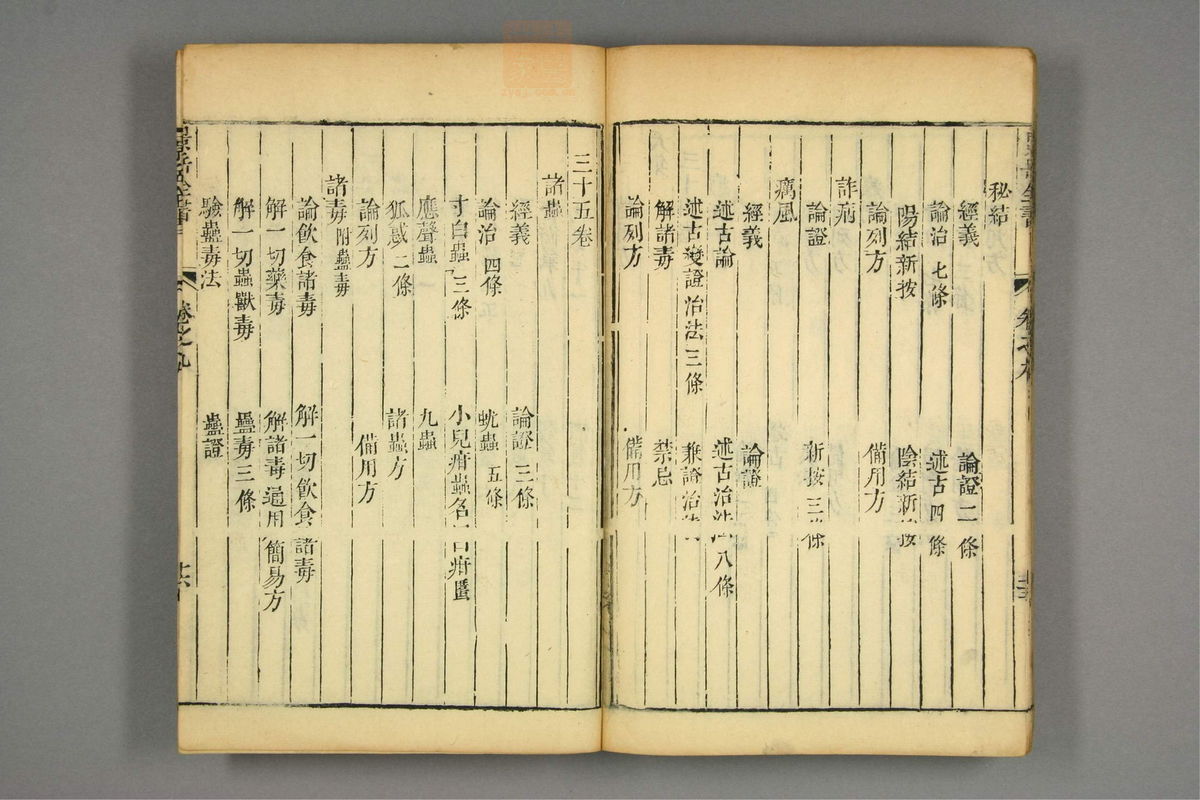 秘結
經義 論證 二條
論治 七條 述古 四條
陽結新按 陰結新按
論列方 備用方
詐病
論證 新按 三條
癘風
經義 論證
述古論 述古治法 八條
述古變證治法 三條 兼證治法
解諸毒 禁忌
論列方 備用方
三十五卷
諸蟲
經義 論證 三條
論治 四條 蚘蟲 五條
寸白蟲 三條 小兒疳蟲
應聲蟲 九蟲
狐惑 二條 諸蟲方
論列方 備用方
諸毒 附蠱毒
論飲食諸毒 解一切飲食諸毒
解一切藥毒 解諸毒通用簡易方
解一切蟲獸毒 蠱毒 三條
驗蠱毒法 蠱證
景岳全書
卷之九